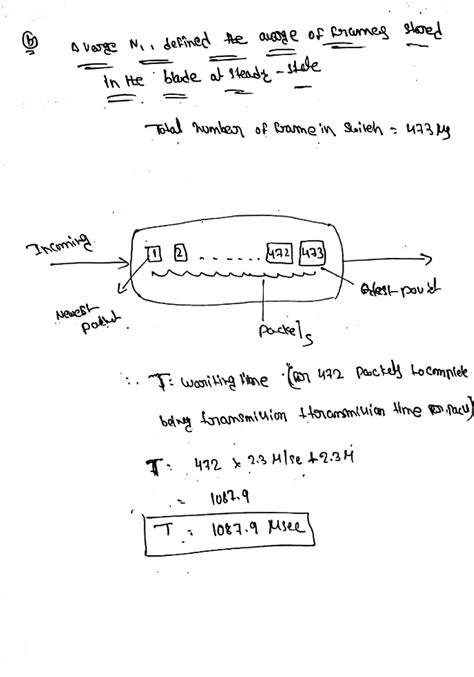 (b) Average N, , defined the average of frames stored
in the blade at steady-state
Total number of frame in switch = 473 Mg
Incoming
1 2 ...... 472 473
Newest
packet
oldest packet
packets
∴ T = waiting time (for 472 packets to complete
being transmission + transmission time for. pack)
T = 472 x 2.3 M/se + 2.3 M
= 1087.9
T = 1087.9 Msec